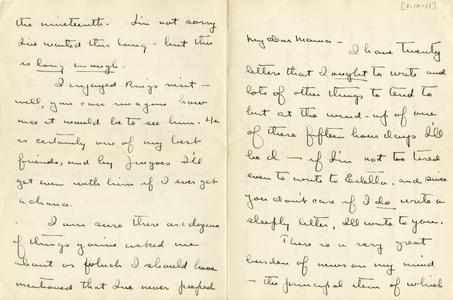 the nineteenth. I'm not sorry
I've waited this long - but this
is long enough.
I enjoyed King's visit -
well, you can imagine how
nice it would be to see him. He
is certainly one of my best
friends, and by Jingoes I'll
get even with him if I ever get
a chance.
I am sure there are dozens
of things you've asked me
about or which I should have
mentioned that I've never
[2-10-11]
My dear Mama -
I have twenty
letters that I ought to write and
lots of other things to tend to
but at the wind-up of one
of these fifteen hour days I'll
be d - if I'm not too tired
even to write to Estella, and since
you don't care if I do write a
sleepy letter, I'll write to you.
There is a very great
burden of news on my mind
- the principal item of which